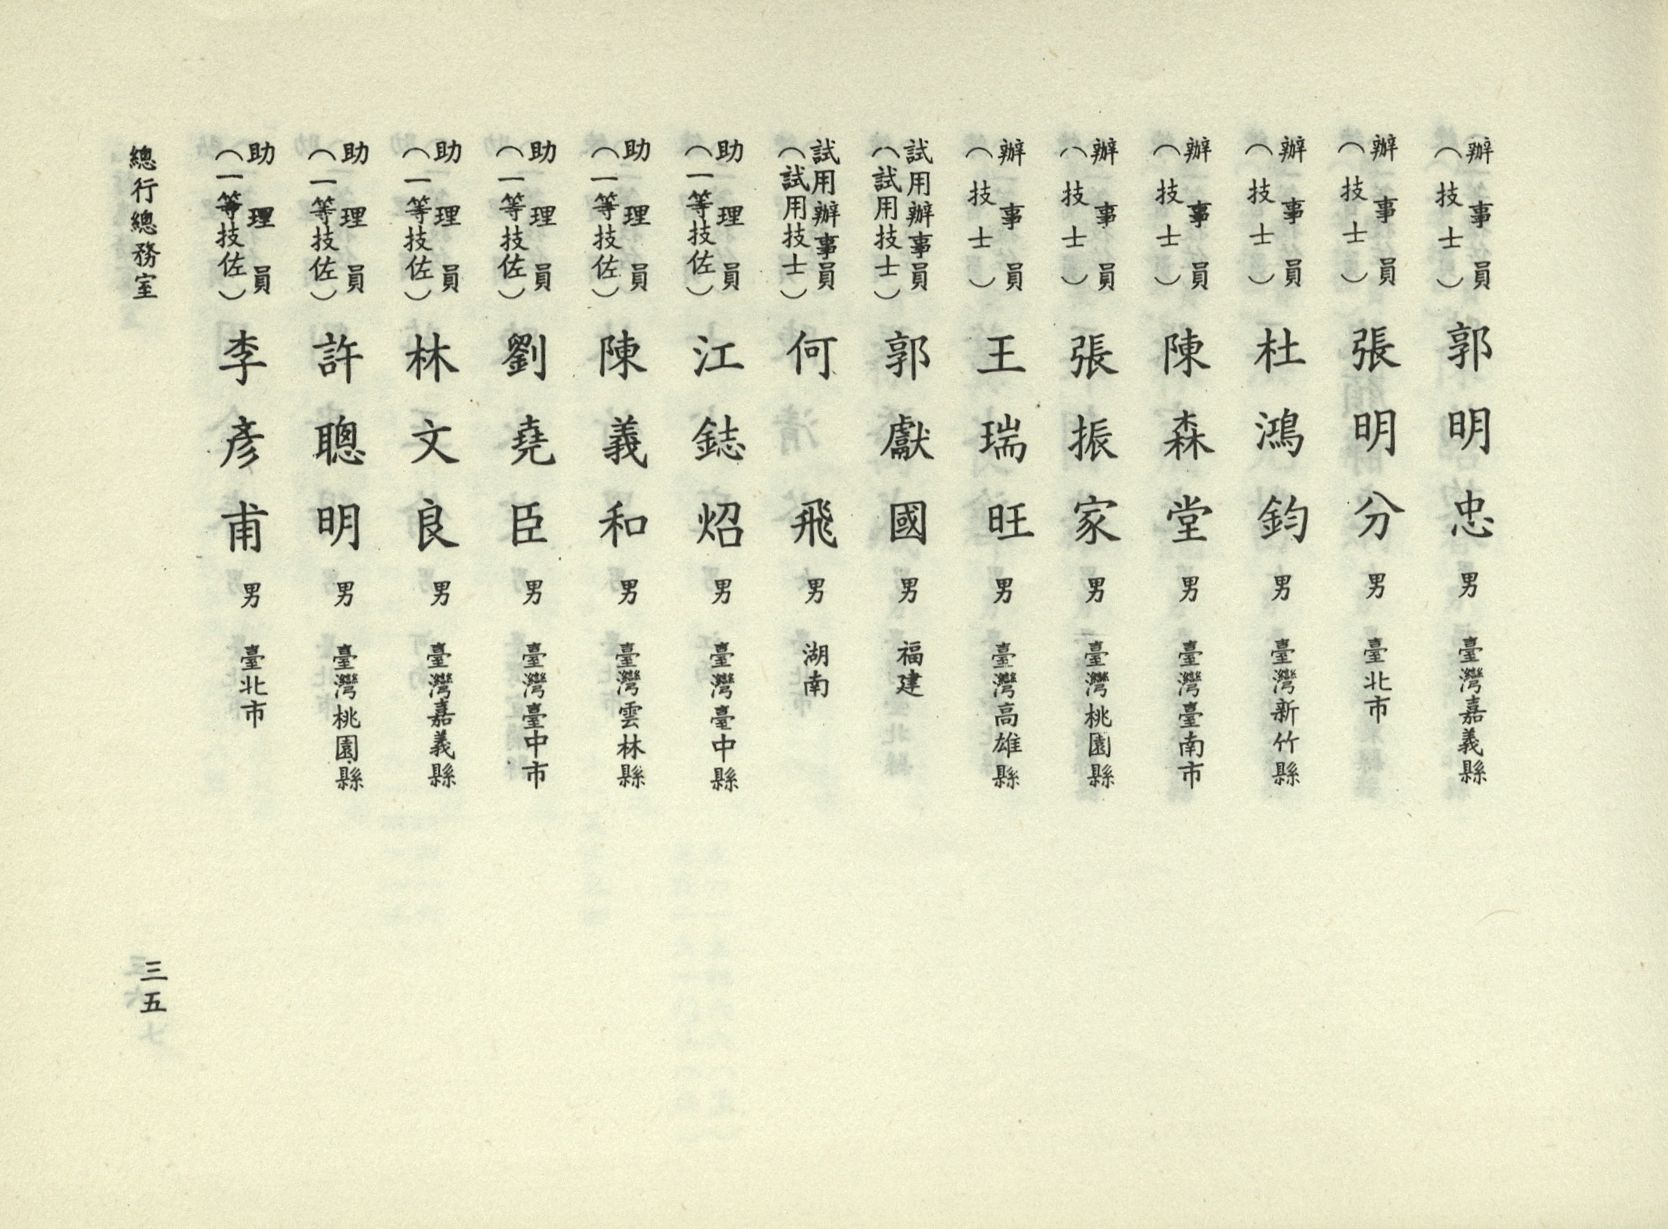 辦事員(技士) 郭明忠 男 臺灣嘉義縣
辦事員(技士) 張明分 男 臺北市
辦事員(技士) 杜鴻鈞 男 臺灣新竹縣
辦事員(技士) 陳森堂 男 臺灣臺南市
辦事員(技士) 張振家 男 臺灣桃園縣
辦事員(技士) 王瑞旺 男 臺灣高雄縣
試用辦事員(試用技士) 郭獻國 男 福建
試用辦事員(試用技士) 何飛 男 湖南
助理員(一等技佐) 江鋕炤 男 臺灣臺中縣
助理員(一等技佐) 陳義和 男 臺灣雲林縣
助理員(一等技佐) 劉堯臣 男 臺灣臺中市
助理員(一等技佐) 林文良 男 臺灣嘉義縣
助理員(一等技佐) 許聰明 男 臺灣桃園縣
助理員(一等技佐) 李彥甫 男 臺北市
總行總務室
三五